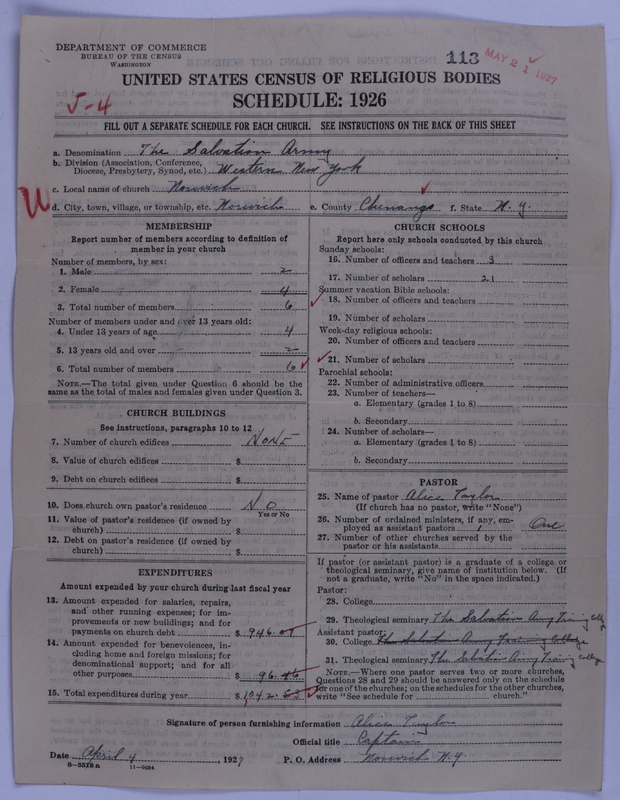 DEPARTMENT OF COMMERCE
BUREAU OF THE CENSUS
WASHINGTON
113
MAY 21 1927
UNITED STATES CENSUS OF RELIGIOUS BODIES
J-4
SCHEDULE: 1926
FILL OUT A SEPARATE SCHEDULE FOR EACH CHURCH. SEE INSTRUCTIONS ON THE BACK OF THIS SHEET
a. Denomination The Salvation Army
b. Division (Association, Conference,
Diocese, Presbytery, Synod, etc.) Western New York
c. Local name of church Norwich
W
d. City, town, village, or township, etc. Norwich e. County Chenango f. State N.Y.
MEMBERSHIP
Report number of members according to definition of
member in your church
Number of members, by sex:
1. Male 2
2. Female 4
3. Total number of members 6
Number of members under and over 13 years old:
4. Under 13 years of age 4
5. 13 years old and over 2
6. Total number of members 6
NOTE.—The total given under Question 6 should be the
same as the total of males and females given under Question 3.
CHURCH BUILDINGS
See instructions, paragraphs 10 to 12
7. Number of church edifices NONE
8. Value of church edifices $
9. Debt on church edifices $
10. Does church own pastor's residence NO
Yes or No
11. Value of pastor's residence (if owned by
church) $
12. Debt on pastor's residence (if owned by
church) $
EXPENDITURES
Amount expended by your church during last fiscal year
13. Amount expended for salaries, repairs,
and other running expenses; for im-
provements or new buildings; and for
payments on church debt $ 946.07
14. Amount expended for benevolences, in-
cluding home and foreign missions; for
denominational support; and for all
other purposes $ 96.46
15. Total expenditures during year $ 1042.53
CHURCH SCHOOLS
Report here only schools conducted by this church
Sunday schools:
16. Number of officers and teachers 3
17. Number of scholars 21
Summer vacation Bible schools:
18. Number of officers and teachers
19. Number of scholars
Week-day religious schools:
20. Number of officers and teachers
21. Number of scholars
Parochial schools:
22. Number of administrative officers
23. Number of teachers—
a. Elementary (grades 1 to 8)
b. Secondary
24. Number of scholars—
a. Elementary (grades 1 to 8)
b. Secondary
PASTOR
25. Name of pastor Alice Taylor
(If church has no pastor, write "None")
26. Number of ordained ministers, if any, em-
ployed as assistant pastors 1 One
27. Number of other churches served by the
pastor or his assistants
If pastor (or assistant pastor) is a graduate of a college or
theological seminary, give name of institution below. (If
not a graduate, write "No" in the space indicated.)
Pastor:
28. College
29. Theological seminary The Salvation Army Training College
Assistant pastor:
30. College The Salvation Army Training College
31. Theological seminary The Salvation Army Training College
NOTE.—Where one pastor serves two or more churches,
Questions 28 and 29 should be answered only on the schedule
for one of the churches; on the schedules for the other churches,
write "See schedule for church."
Signature of person furnishing information Alice Taylor
Official title Captain
Date April 4, 1927 P. O. Address Norwich N.Y.
8—5518 a 11—9034